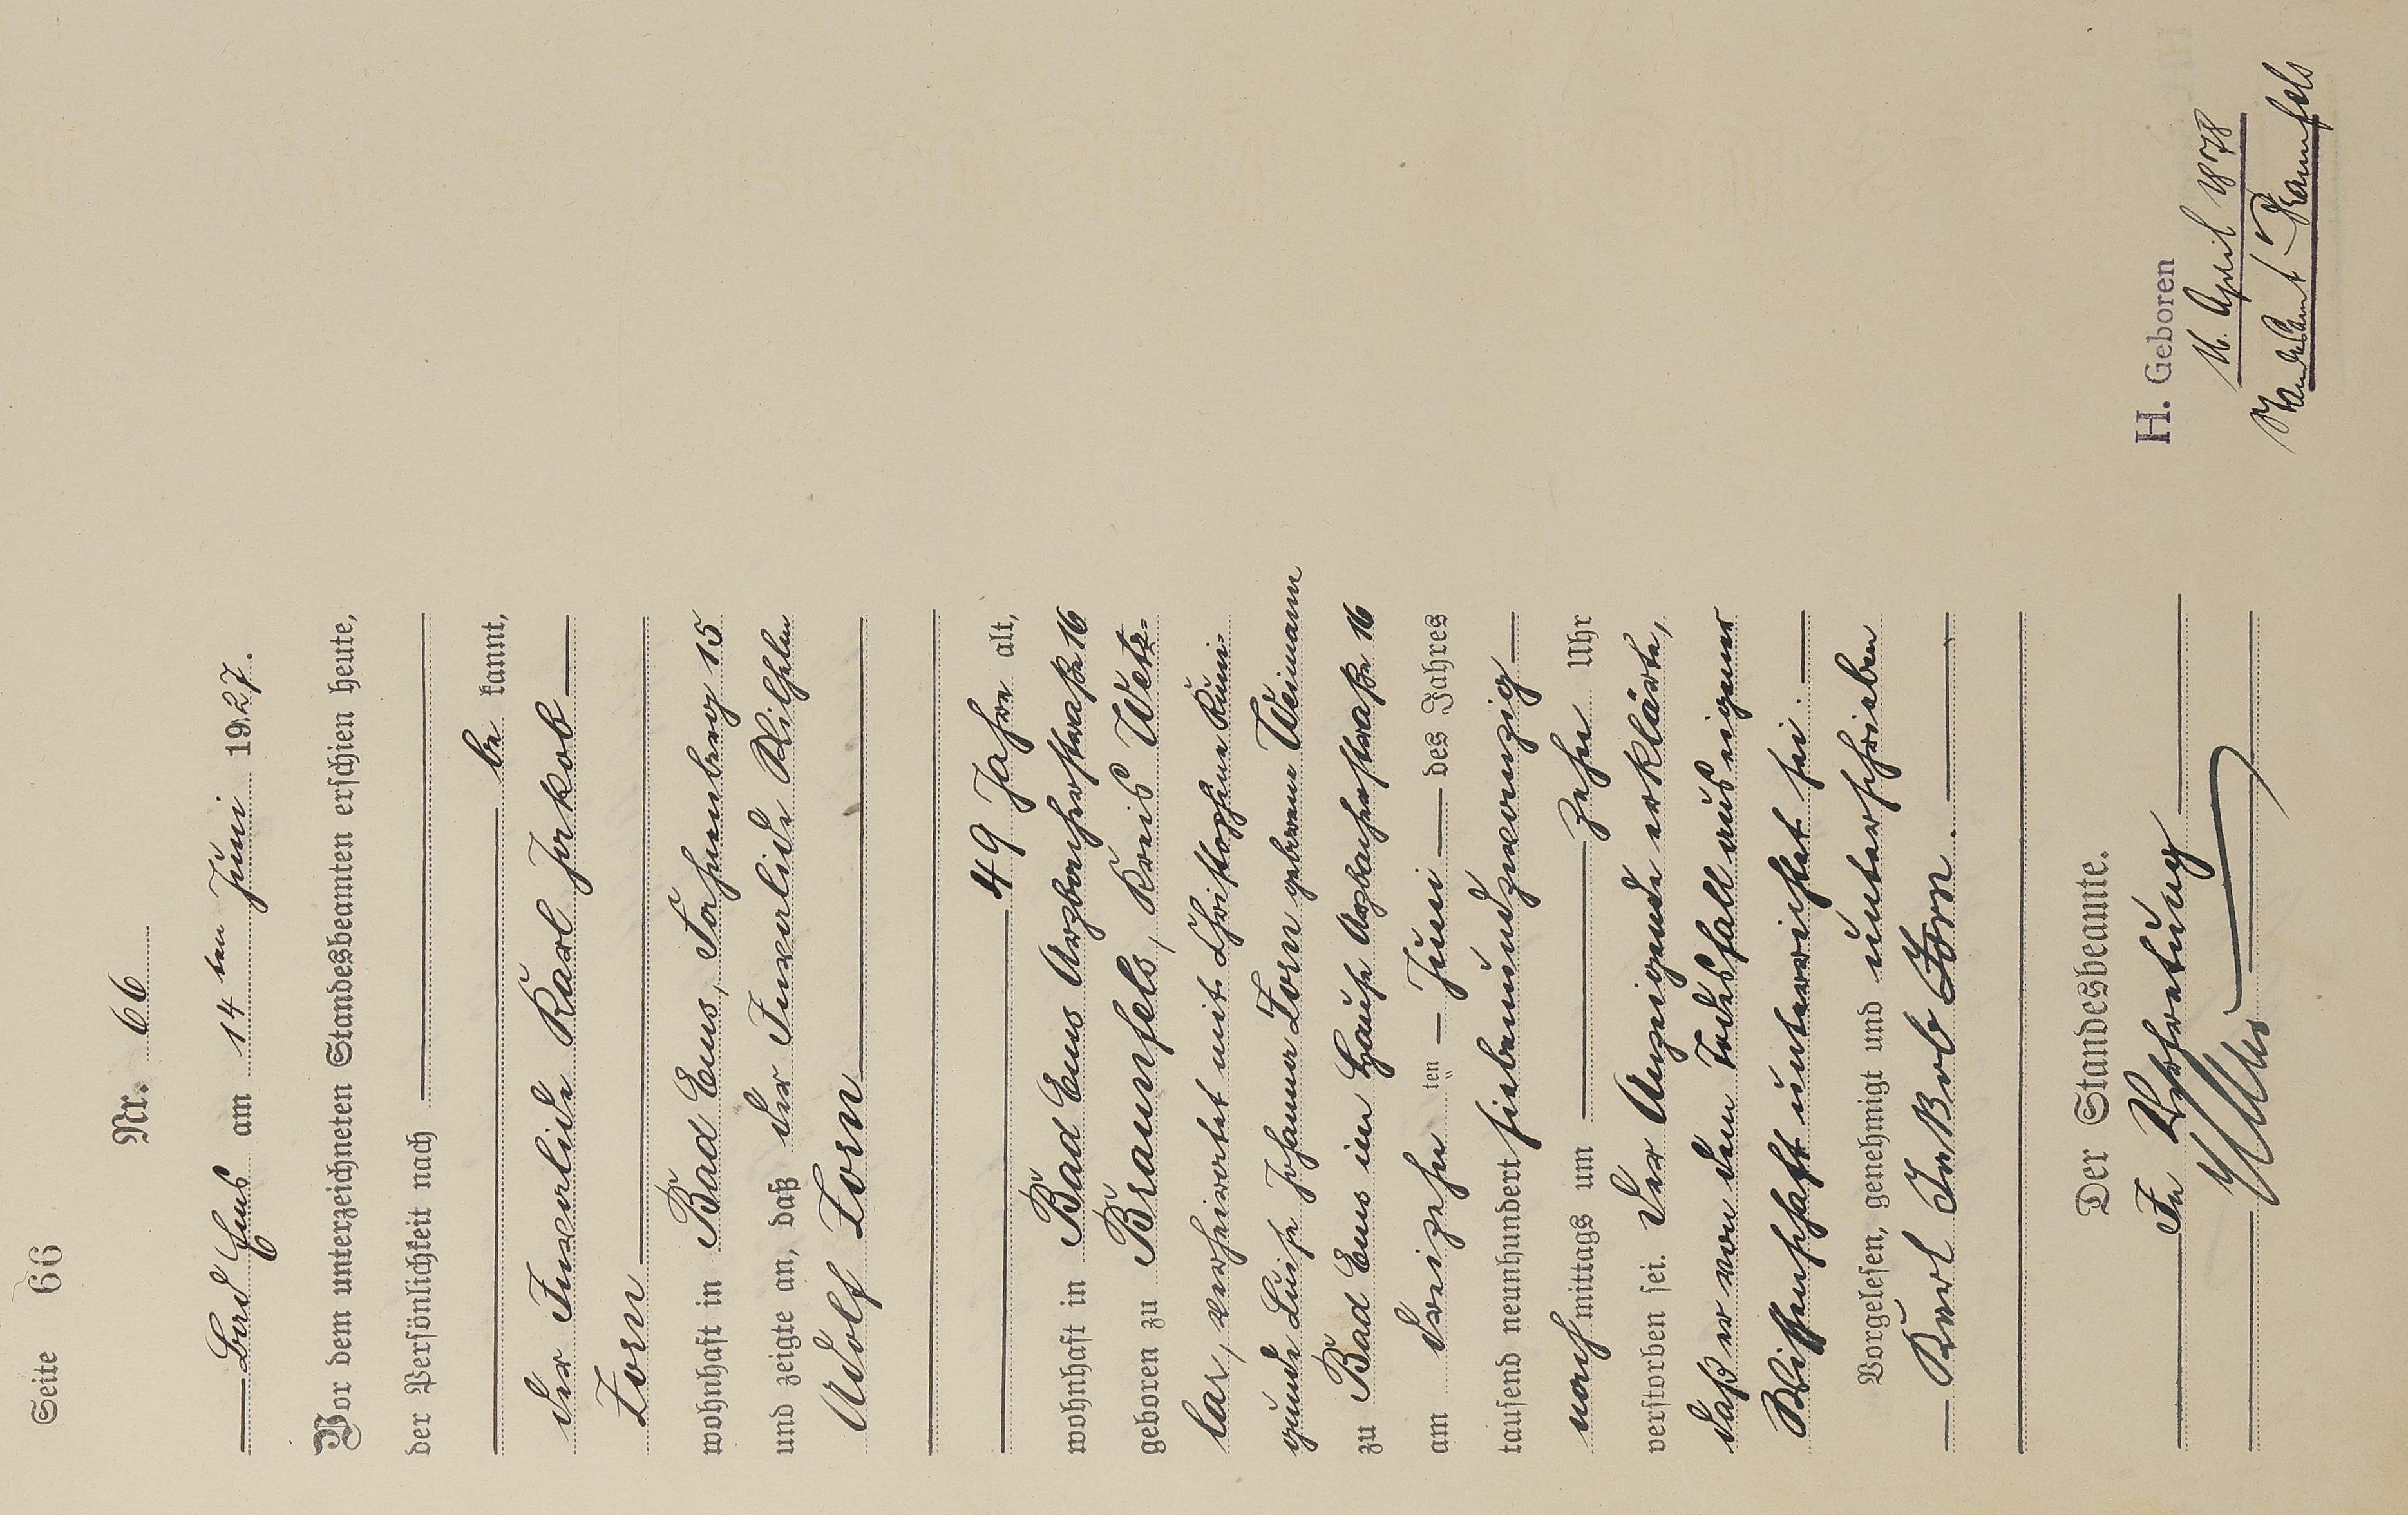 Seite 66
Nr. 66
Bad Ems am 14 ten Juni 1927.
Vor dem unterzeichneten Standesbeamten erschien heute,
der Persönlichkeit nach
be kannt,
der Invalide Karl Jakob
Zorn
wohnhaft in Bad Ems, Fahnenberg 15
und zeigte an, daß der Invalide Wilhelm
Adolf Zorn
49 Jahre alt,
wohnhaft in Bad Ems Arzbacherstraße 16
geboren zu Braunfels, Kreis Wetz=
lar, verheiratet mit Christophine Kuni=
gunde Luise Johanna Zorn geborene Weimann
zu Bad Ems im Hause Arzbacherstraße 16
am dreizehn ten Juni des Jahres
tausend neunhundert siebenundzwanzig
nach mittags um zehn Uhr
verstorben sei. Der Anzeigende erklärte,
daß er von dem Todesfall aus eigener
Wissenschaft unterrichtet sei.
Vorgelesen, genehmigt und unterschrieben
Karl Jakob Zorn.
Der Standesbeamte.
In Vertretung
H. Geboren
16. April 1878
Standesamt Braunfels